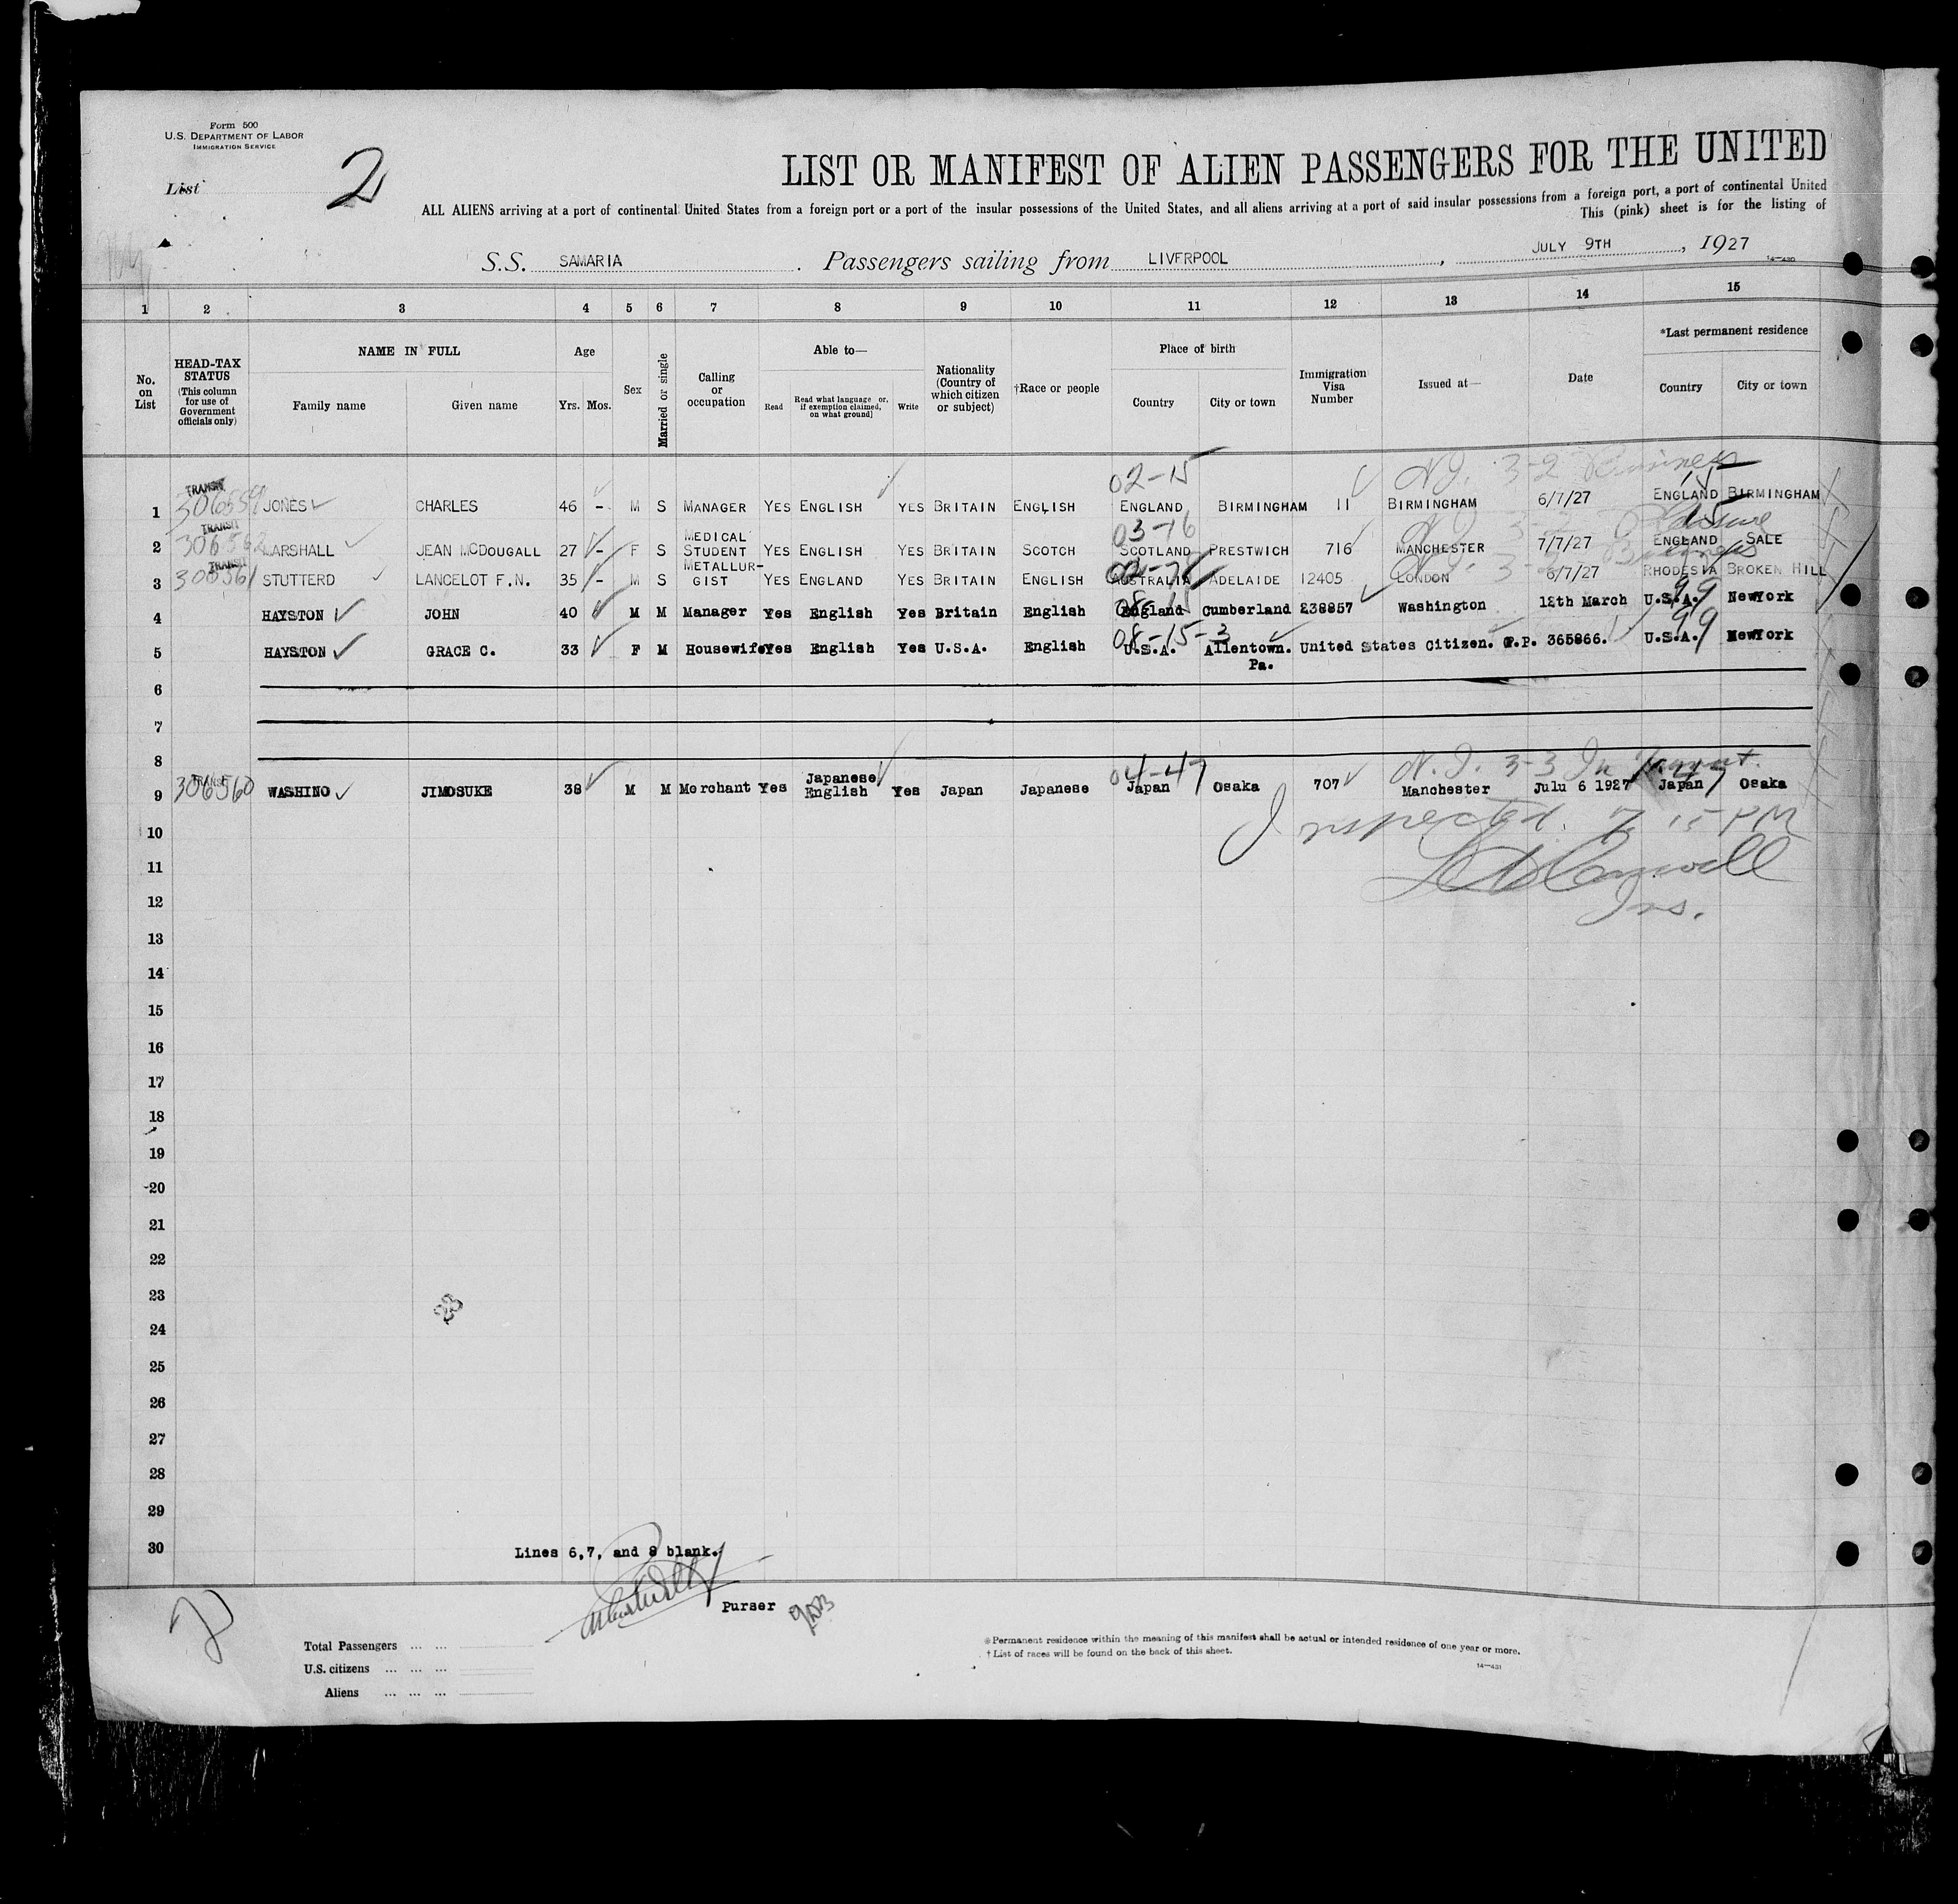 Form 500
U.S. DEPARTMENT OF LABOR
IMMIGRATION SERVICE
List 2
LIST OR MANIFEST OF ALIEN PASSENGERS FOR THE UNITED
ALL ALIENS arriving at a port of continental United States from a foreign port or a port of the insular possessions of the United States, and all aliens arriving at a port of said insular possessions from a foreign port, a port of continental United
This (pink) sheet is for the listing of
S.S. SAMARIA . Passengers sailing from LIVERPOOL , JULY 9TH , 1927
14—430
1 2 3 4 5 6 7 8 9 10 11 12 13 14 15
No. on List
HEAD-TAX STATUS (This column for use of Government officials only)
NAME IN FULL
Family name Given name
Age
Yrs. Mos.
Sex
Married or single
Calling or occupation
Able to—
Read Read what language or, if exemption claimed, on what ground] Write
Nationality (Country of which citizen or subject)
†Race or people
Place of birth
Country City or town
Immigration Visa Number
Issued at—
Date
*Last permanent residence
Country City or town
02-15 N.I. 3-2 Business 15
1 TRANSIT JONES CHARLES 46 - M S MANAGER YES ENGLISH YES BRITAIN ENGLISH ENGLAND BIRMINGHAM 11 BIRMINGHAM 6/7/27 ENGLAND BIRMINGHAM
03-16 Pleasure 15
2 TRANSIT 306562 MARSHALL JEAN MCDOUGALL 27 - F S MEDICAL STUDENT YES ENGLISH YES BRITAIN SCOTCH SCOTLAND PRESTWICH 716 MANCHESTER 7/7/27 ENGLAND SALE
Business
3 TRANSIT 306561 STUTTERD LANCELOT F.N. 35 - M S METALLUR-GIST YES ENGLAND YES BRITAIN ENGLISH AUSTRALIA ADELAIDE 12405 LONDON 6/7/27 RHODESIA BROKEN HILL
99
4 HAYSTON JOHN 40 M M Manager Yes English Yes Britain English England Cumberland 238857 Washington 12th March U.S.A. NewYork
08-15-3 99
5 HAYSTON GRACE C. 33 F M Housewife Yes English Yes U.S.A. English U.S.A. Allentown. Pa. United States Citizen. P.P. 365866. U.S.A. NewYork
6
7
8
04-47 N.I. 3-3 In Transit. 47
9 TRANSIT 306560 WASHINO JIMOSUKE 38 M M Merchant Yes Japanese English Yes Japan Japanese Japan Osaka 707 Manchester Julu 6 1927 Japan Osaka
Inspected. 7.15 PM
10
11
Ins.
12
13
14
15
16
17
18
19
20
21
22
23
24
25
26
27
28
29
30
Lines 6,7, and 8 blank.
Purser
2
Total Passengers ... ...
U.S. citizens ... ... ...
Aliens ... ... ...
*Permanent residence within the meaning of this manifest shall be actual or intended residence of one year or more.
†List of races will be found on the back of this sheet.
14—431